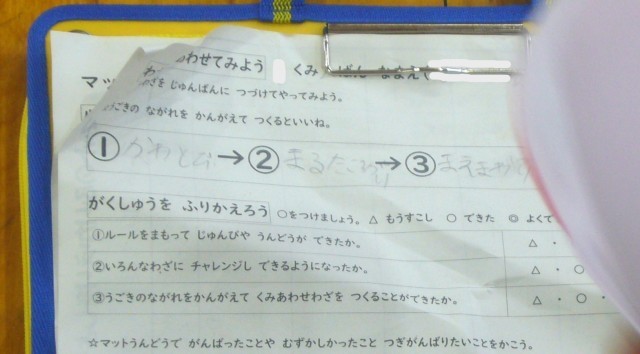 あわせてみよう くみ ばん なまえ(
マッ
わざを じゅんばんに つづけてやってみよう。
うごきの ながれを かんがえて つくるといいね。
① かわとび → ② まるたころがり → ③ まえまわり
がくしゅうを ふりかえろう ○をつけましょう。 △ もうすこし ○ できた ◎ よくで
①ルールをまもって じゅんびや うんどうが できたか。 △ ・
②いろんなわざに チャレンジし できるようになったか。 △ ・ ○
③うごきのながれをかんがえて くみあわせわざを つくることができたか。 △ ・ ○ ・
☆マットうんどうで がんばったことや むずかしかったこと つぎがんばりたいことをかこう。